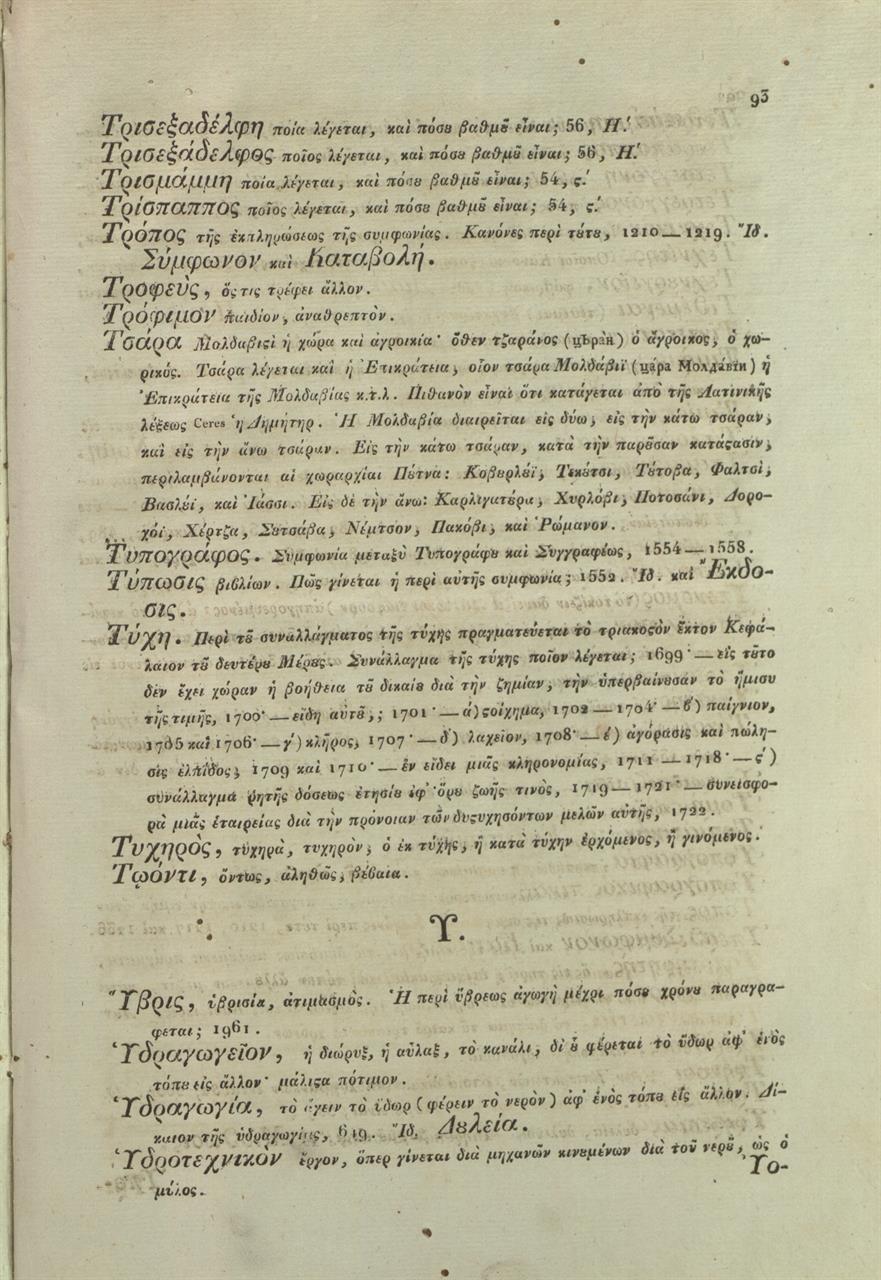 93
Τρισεξαδέλφη ποία λέγεται, καὶ πόσȣ βαθμȣ͂ εἶναι; 56, Η.΄
Τρισεξάδελφος ποῖος λέγεται, καὶ πόσȣ βαθμȣ͂ εἶναι; 56, Η.΄
Τρισμάμμη ποία λέγεται, καὶ πόσȣ βαθμȣ͂ εἶναι; 54, ϛ.΄
Τρίσπαππος ποῖος λέγεται, καὶ πόσȣ βαθμȣ͂ εἶναι; 54, ϛ.΄
Τρόπος τῆς ἐκπληρώσεως τῆς συμφωνίας. Κανόνες περὶ τȣ́τȣ, 1210—1219. Ἴδ.
Σύμφωνον καὶ Καταβολή.
Τροφεὺς, ὅς τις τρέφει ἄλλον.
Τρόφιμον παιδίον, ἀναθρεπτὸν.
Τσάρα Μολδαβιϛὶ ἡ χώρα καὶ ἀγροικία· ὅθεν τζαράνος (цѣра́н) ὁ ἄγροικος, ὁ χω-
ρικός. Τσάρα λέγεται καὶ ἡ Ἐπικράτεια, οἷον τσάρα Μολδάβιϊ (ца́ра Молда́вїи) ἡ
Ἐπικράτεια τῆς Μολδαβίας κ.τ.λ. Πιθανὸν εἶναι ὅτι κατάγεται ἀπὸ τῆς Λατινικῆς
λέξεως Ceres ἡ Δημήτηρ. Ἡ Μολδαβία διαιρεῖται εἰς δύω, εἰς τὴν κάτω τσάραν,
καὶ εἰς τὴν ἄνω τσάραν. Εἰς τὴν κάτω τσάραν, κατὰ τὴν παρȣ͂σαν κατάϛασιν,
περιλαμβάνονται αἱ χωραρχίαι Πȣ́τνα: Κοβȣρλȣ́ϊ, Τεκȣ́τσι, Τȣ́τοβα, Φαλτσὶ,
Βασλȣ́ϊ, καὶ Ἰάσσι. Εἰς δὲ τὴν ἄνω: Καρλιγατȣ́ρα, Χυρλόβι, Ποτοσάνι, Δορο-
χόϊ, Χέρτζα, Σȣτσάβα, Νέμτσον, Πακόβι, καὶ Ῥώμανον.
Τυπογράφος. Συμφωνία μεταξὺ Τυπογράφȣ καὶ Συγγραφέως, 1554—1558.
Τύπωσις βιβλίων. Πῶς γίνεται ἡ περὶ αὐτῆς συμφωνία; 1552. Ἴδ. καὶ Ἔκδο-
σις.
Τύχη. Περὶ τȣ͂ συναλλάγματος τῆς τύχης πραγματεύεται τὸ τριακοϛὸν ἕκτον Κεφά-
λαιον τȣ͂ δευτέρȣ Μέρȣς. Συνάλλαγμα τῆς τύχης ποῖον λέγεται; 1699·—εἰς τȣ͂το
δὲν ἔχει χώραν ἡ βοήθεια τȣ͂ δικαίȣ διὰ τὴν ζημίαν, τὴν ὑπερβαίνȣσαν τὸ ἥμισυ
τῆς τιμῆς, 1700·—εἴδη αὐτȣ͂,; 1701·—ά) ϛοίχημα, 1702—1704·—ϐ́) παίγνιον,
1705 καὶ 1706·—γ΄) κλῆρος, 1707·—δ΄) λαχεῖον, 1708·—έ) ἀγόρασις καὶ πώλη-
σις ἐλπίδος, 1709 καὶ 1710·—ἐν εἴδει μιᾶς κληρονομίας, 1711—1718·—ϛ΄)
συνάλλαγμα ῥητῆς δόσεως ἐτησίȣ ἐφ' ὅρȣ ζωῆς τινὸς, 1719—1721·—συνεισφο-
ρὰ μιᾶς ἑταιρείας διὰ τὴν πρόνοιαν τῶν δυϛυχησόντων μελῶν αὐτῆς, 1722.
Τυχηρὸς, τυχηρὰ, τυχηρὸν, ὁ ἐκ τύχης, ἢ κατὰ τύχην ἐρχόμενος, ἢ γινόμενος.
Τῳόντι, ὄντως, ἀληθῶς, βέβαια.
Υ.
Ὕβρις, ὑβρισία, ἀτιμασμὸς. Ἡ περὶ ὕβρεως ἀγωγὴ μέχρι πόσȣ χρόνȣ παραγρά-
φεται; 1961.
Ὑδραγωγεῖον, ἡ διώρυξ, ἡ αὖλαξ, τὸ κανάλι, δι' ȣ̔͂ φέρεται τὸ ὕδωρ ἀφ' ἑνὸς
τόπȣ εἰς ἄλλον· μάλιϛα πότιμον.
Ὑδραγωγία, τὸ ἄγειν τὸ ὕδωρ (φέρειν τὸ νερὸν) ἀφ' ἑνὸς τόπȣ εἰς ἄλλον. Δί-
καιον τῆς ὑδραγωγίας, 649. Ἴδ. Δȣλεία.
Ὑδροτεχνικὸν ἔργον, ὅπερ γίνεται διὰ μηχανῶν κινȣμένων διὰ τοῦ νερȣ͂, ὡς ὁ
μύλος.
Ὑο-